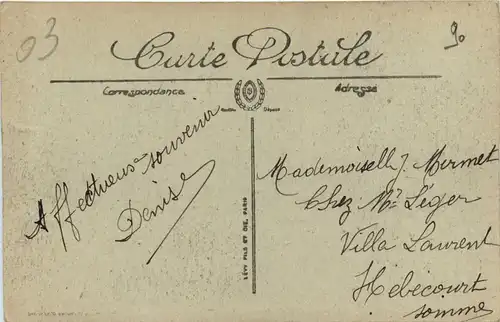 03
90
Carte Postale
Correspondance
Adresse
Affectueux souvenir
Denise
LÉVY FILS ET CIE, PARIS
Mademoiselle J. Mermet
Chez Mr Léger
Villa Laurent
Hébécourt
Somme